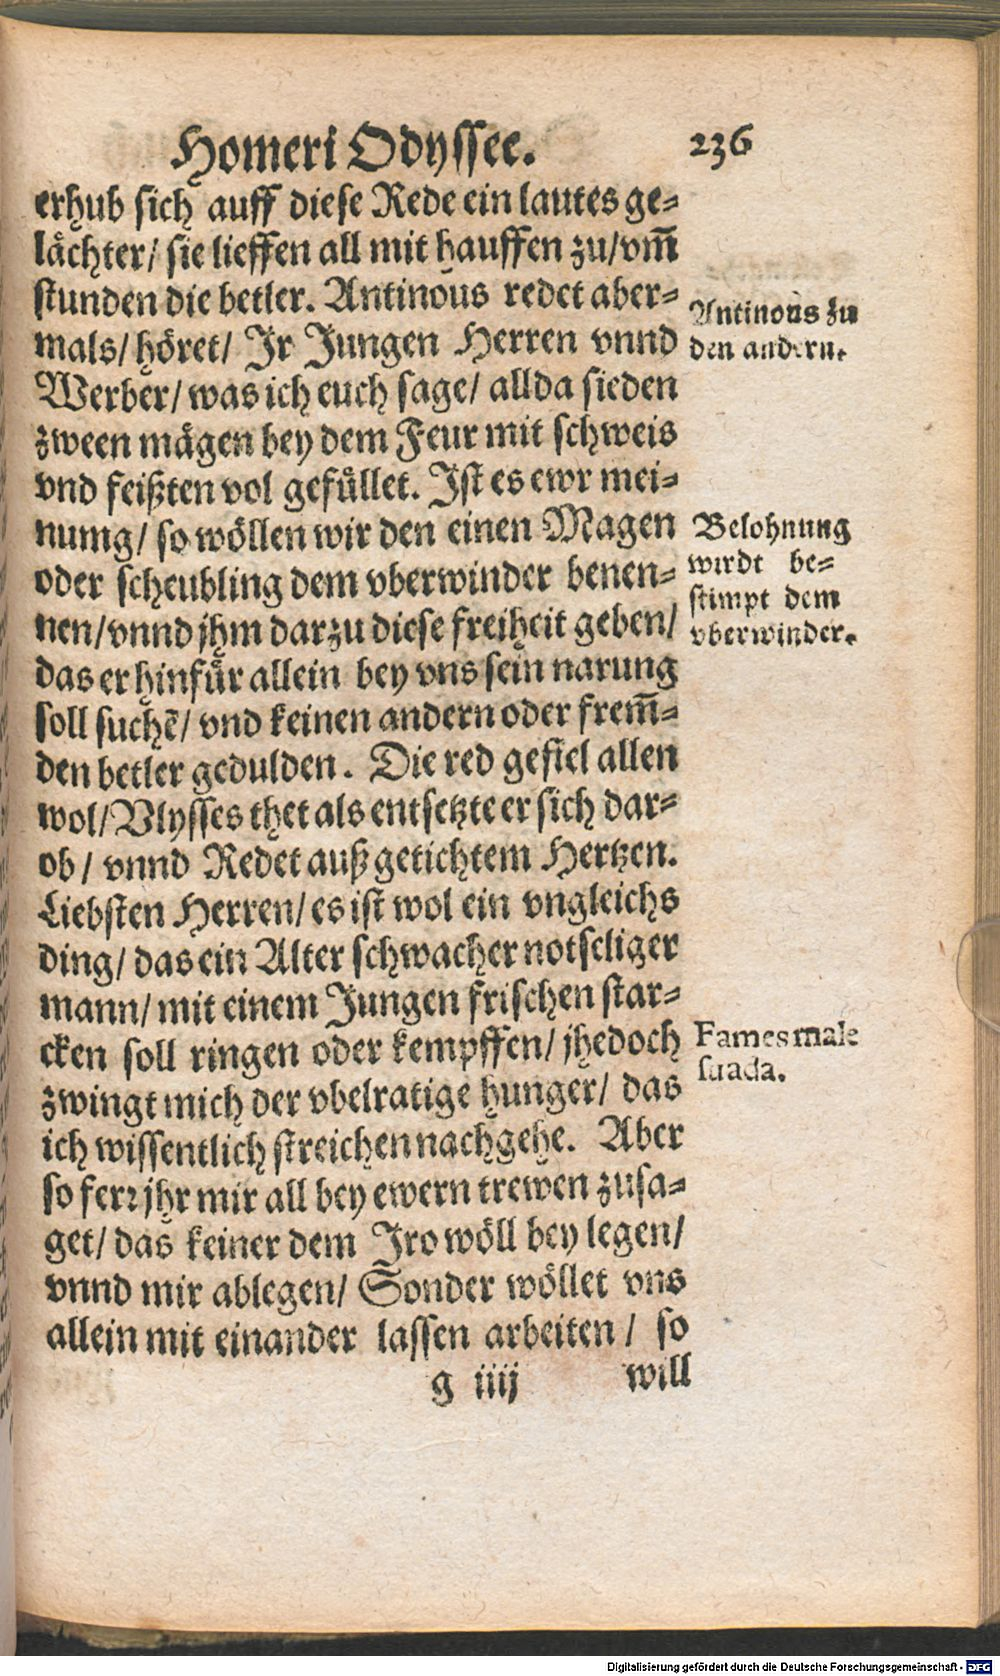 Homeri Odyssee. 236
erhub sich auff diese Rede ein lautes ge-
lächter/ sie lieffen all mit hauffen zu/vm̄
stunden die betler. Antinous redet aber-
mals/ höret/ Ir Jungen Herren vnnd
Werber/ was ich euch sage/ allda sieden
zween mägen bey dem Feur mit schweis
vnd feißten vol gefüllet. Ist es ewr mei-
numg/ so wöllen wir den einen Magen
oder scheubling dem vberwinder benen-
nen/vnnd jhm darzu diese freiheit geben/
das er hinfür allein bey vns sein narung
soll suchē/ vnd keinen andern oder frem̄-
den betler gedulden. Die red gefiel allen
wol/ Vlysses thet als entsetzte er sich dar-
ob/ vnnd Redet auß getichtem Hertzen.
Liebsten Herren/ es ist wol ein vngleichs
ding/ das ein Alter schwacher notseliger
mann/ mit einem Jungen frischen star-
cken soll ringen oder kempffen/ jhedoch
zwingt mich der vbelratige hunger/ das
ich wissentlich streichen nachgehe. Aber
so ferr jhr mir all bey ewern trewen zusa-
get/ das keiner dem Iro wöll bey legen/
vnnd mir ablegen/ Sonder wöllet vns
allein mit einander lassen arbeiten/ so
g iiij will
Antinous zu
den andern.
Belohnung
wirdt be-
stimpt dem
vberwinder.
Fames male
suada.
Digitalisierung gefördert durch die Deutsche Forschungsgemeinschaft - DFG